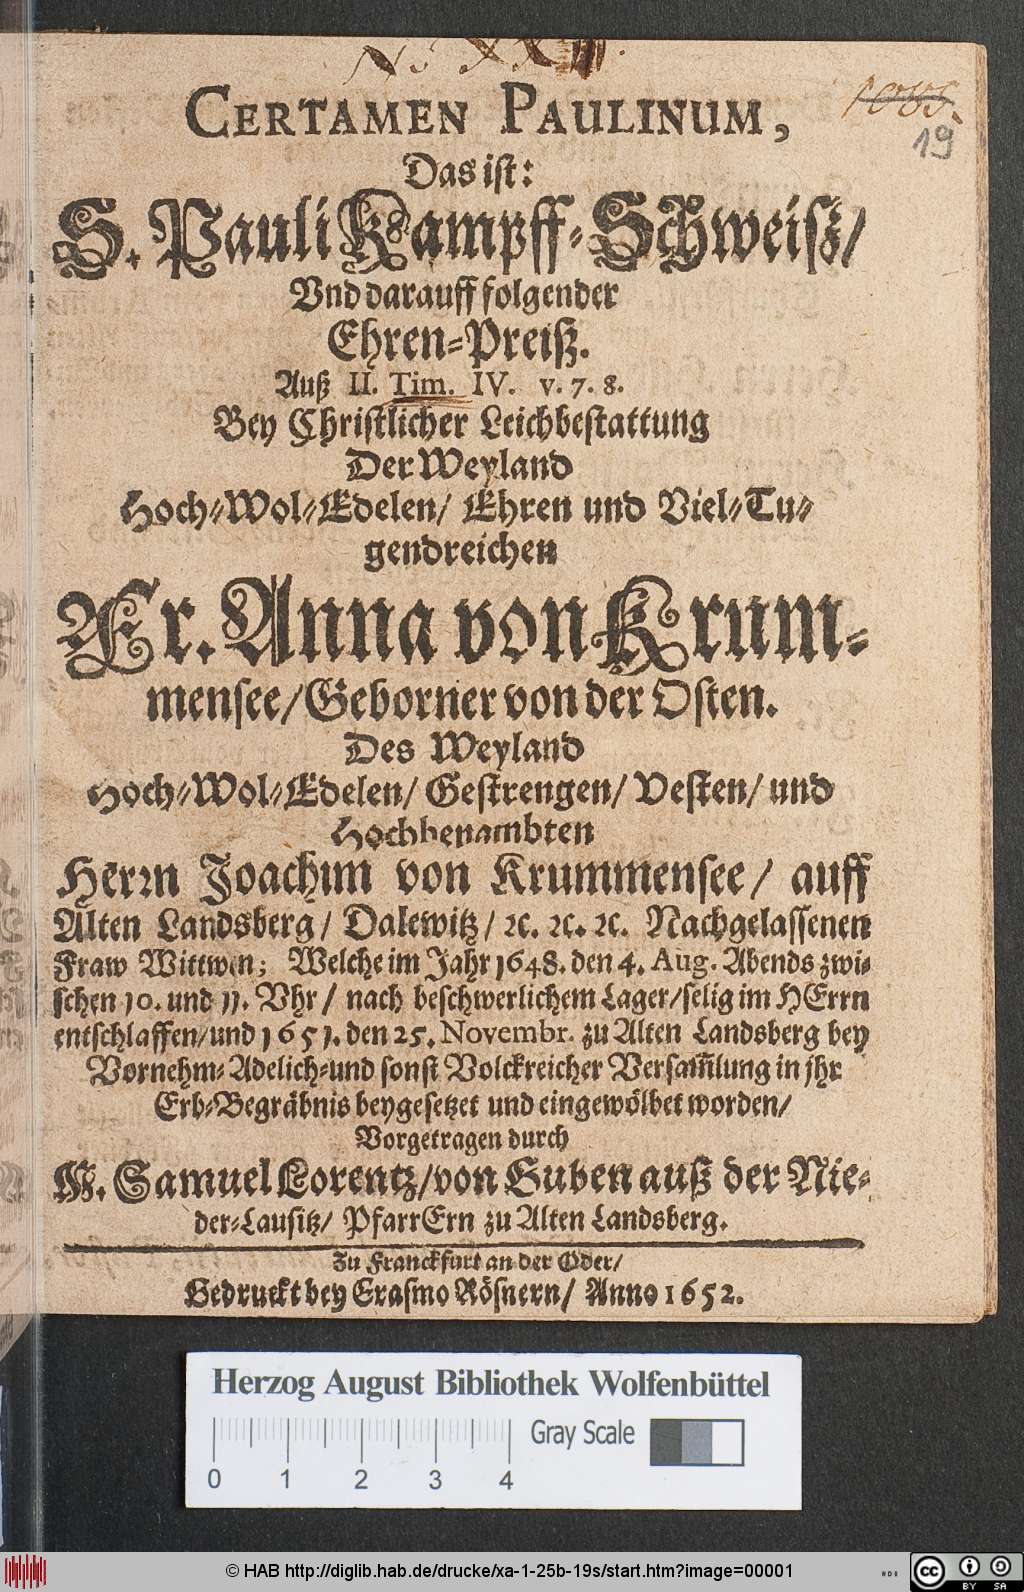 N. XXIII.
CERTAMEN PAULINUM,
19
Das ist:
S. Pauli Kampff-Schweiß/
Vnd darauff folgender
Ehren-Preiß.
Auß II. Tim. IV. v. 7. 8.
Bey Christlicher Leichbestattung
Der Weyland
Hoch-Wol-Edelen/ Ehren und Viel-Tu-
gendreichen
Fr. Anna von Krum-
mensee/ Geborner von der Osten.
Des Weyland
Hoch-Wol-Edelen/ Gestrengen/ Vesten/ und
Hochbenambten
Herrn Joachim von Krummensee/ auff
Alten Landsberg/ Dalewitz/ ꝛc. ꝛc. ꝛc. Nachgelassenen
Fraw Wittwen; Welche im Jahr 1648. den 4. Aug. Abends zwi-
schen 10. und 11. Vhr/ nach beschwerlichem Lager/ selig im HErrn
entschlaffen/ und 1651. den 25. Novembr. zu Alten Landsberg bey
Vornehm-Adelich-und sonst Volckreicher Versam̃lung in jhr
Erb-Begräbnis beygesetzet und eingewölbet worden/
Vorgetragen durch
M. Samuel Lorentz/ von Guben auß der Nie-
der-Lausitz/ PfarrErn zu Alten Landsberg.
Zu Franckfurt an der Oder/
Gedruckt bey Erasmo Rösnern/ Anno 1652.
Herzog August Bibliothek Wolfenbüttel
Gray Scale
0 1 2 3 4
© HAB http://diglib.hab.de/drucke/xa-1-25b-19s/start.htm?image=00001
cc BY SA